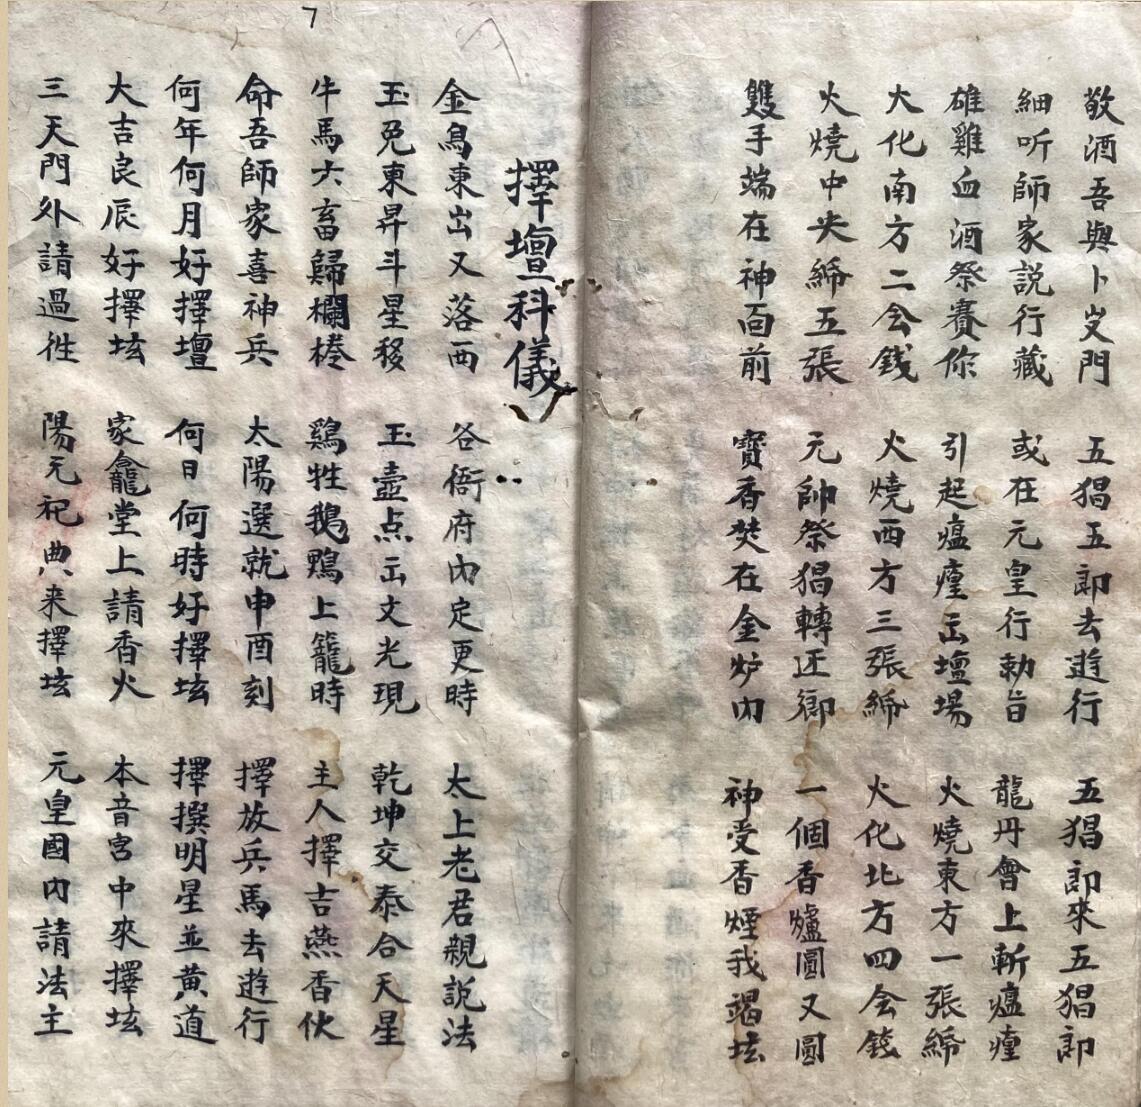 敬酒吾與卜㞮門 五猖五郎去逰行 五猖郎來五猖郎
細听師家説行藏 或在元皇行勅旨 龍丹會上斬瘟瘽
雄雞血酒祭賽你 引起瘟瘽出壇場 火燒東方一張𥿄
火化南方二会錢 火燒西方三張𥿄 火化北方四会錢
火燒中央𥿄五張 元帥祭猖轉还鄉 一個香爐圓又圓
雙手端在神面前 寶香焚在金炉内 神受香煙我踢坛
擇壇科儀
金烏東出又落西 各衙府内定更時 太上老君親說法
玉兔東昇斗星移 玉壺点出文光現 乾坤交泰合天星
牛馬六畜歸欄棬 鷄牲鵝鴨上籠時 主人擇吉燕香伙
命吾師家喜神兵 太陽選就申酉刻 擇放兵馬去逰行
何年何月好擇壇 何日何時好擇坛 擇撰明星並黄道
大吉良辰好擇坛 家龕堂上請香火 本音宮中來擇坛
三天門外請過徃 陽元祀典来擇坛 元皇國内請法主
7